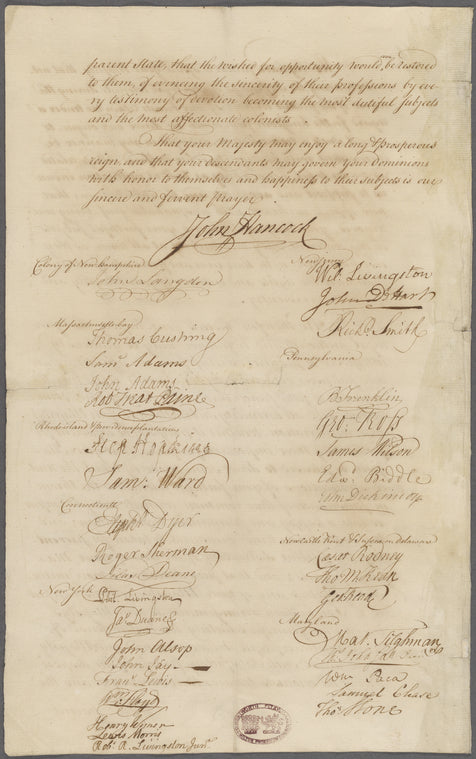 parent State, that the wished for opportunity would be restored
to them, of evincing the sincerity of their professions by eve
ry testimony of devotion becoming the most dutiful subjects
and the most affectionate colonists
That your Majesty may enjoy a long & prosperous
reign, and that your descendants may govern your dominions
with honor to themselves and happiness to their subjects is our
sincere and fervent prayer
John Hancock
Colony of New hampshire
John Langdon
Massachusetts bay
Thomas Cushing
Saml Adams
John Adams
Robt Treat Paine
Rhode island & providence plantations
Step Hopkins
Saml: Ward
Connecticutt
Elipht Dyer
Roger Sherman
Silas Deane
New York
Phil. Livingston
Jas Duane
John Alsop
John Jay
Frans Lewis
Wm Floyd
Henry Wisner
Lewis Morris
Robt R. Livingston Junr
New Jersey
Wil: Livingston
John De Hart
Richd Smith
Pennsylvania
B Franklin
Geo: Ross
James Wilson
Edwd Biddle
John Dickinson
Newcastle Kent & Sussex on delaware
Caesar Rodney
Tho M:Kean
Geo Read
Maryland
Mat. Tilghman
Ths Johnson Junr
Wm Paca
Samuel Chase
Thos Stone